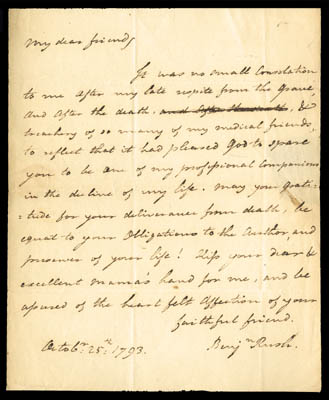 My dear friend,
It was no small Consolation
to me after my late respite from the Grave,
and after the death, &
treachery of so many of my medical friends,
to reflect that it had pleased God to spare
you to be one of my professional Companions
in the decline of my life. May your grati-
-tude for your deliverance from death, be
equal to your Obligations to the Author, and
preserver of your life! Kiss your dear &
excellent Mama's hand for me, and be
assured of the heart felt Affection of your
faithful friend.
Octobr. 25th. 1793. Benjn Rush.